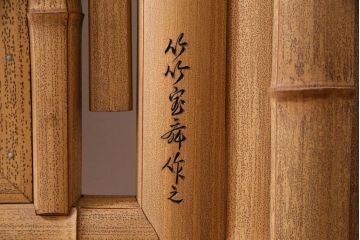 竹竹宝舞作之